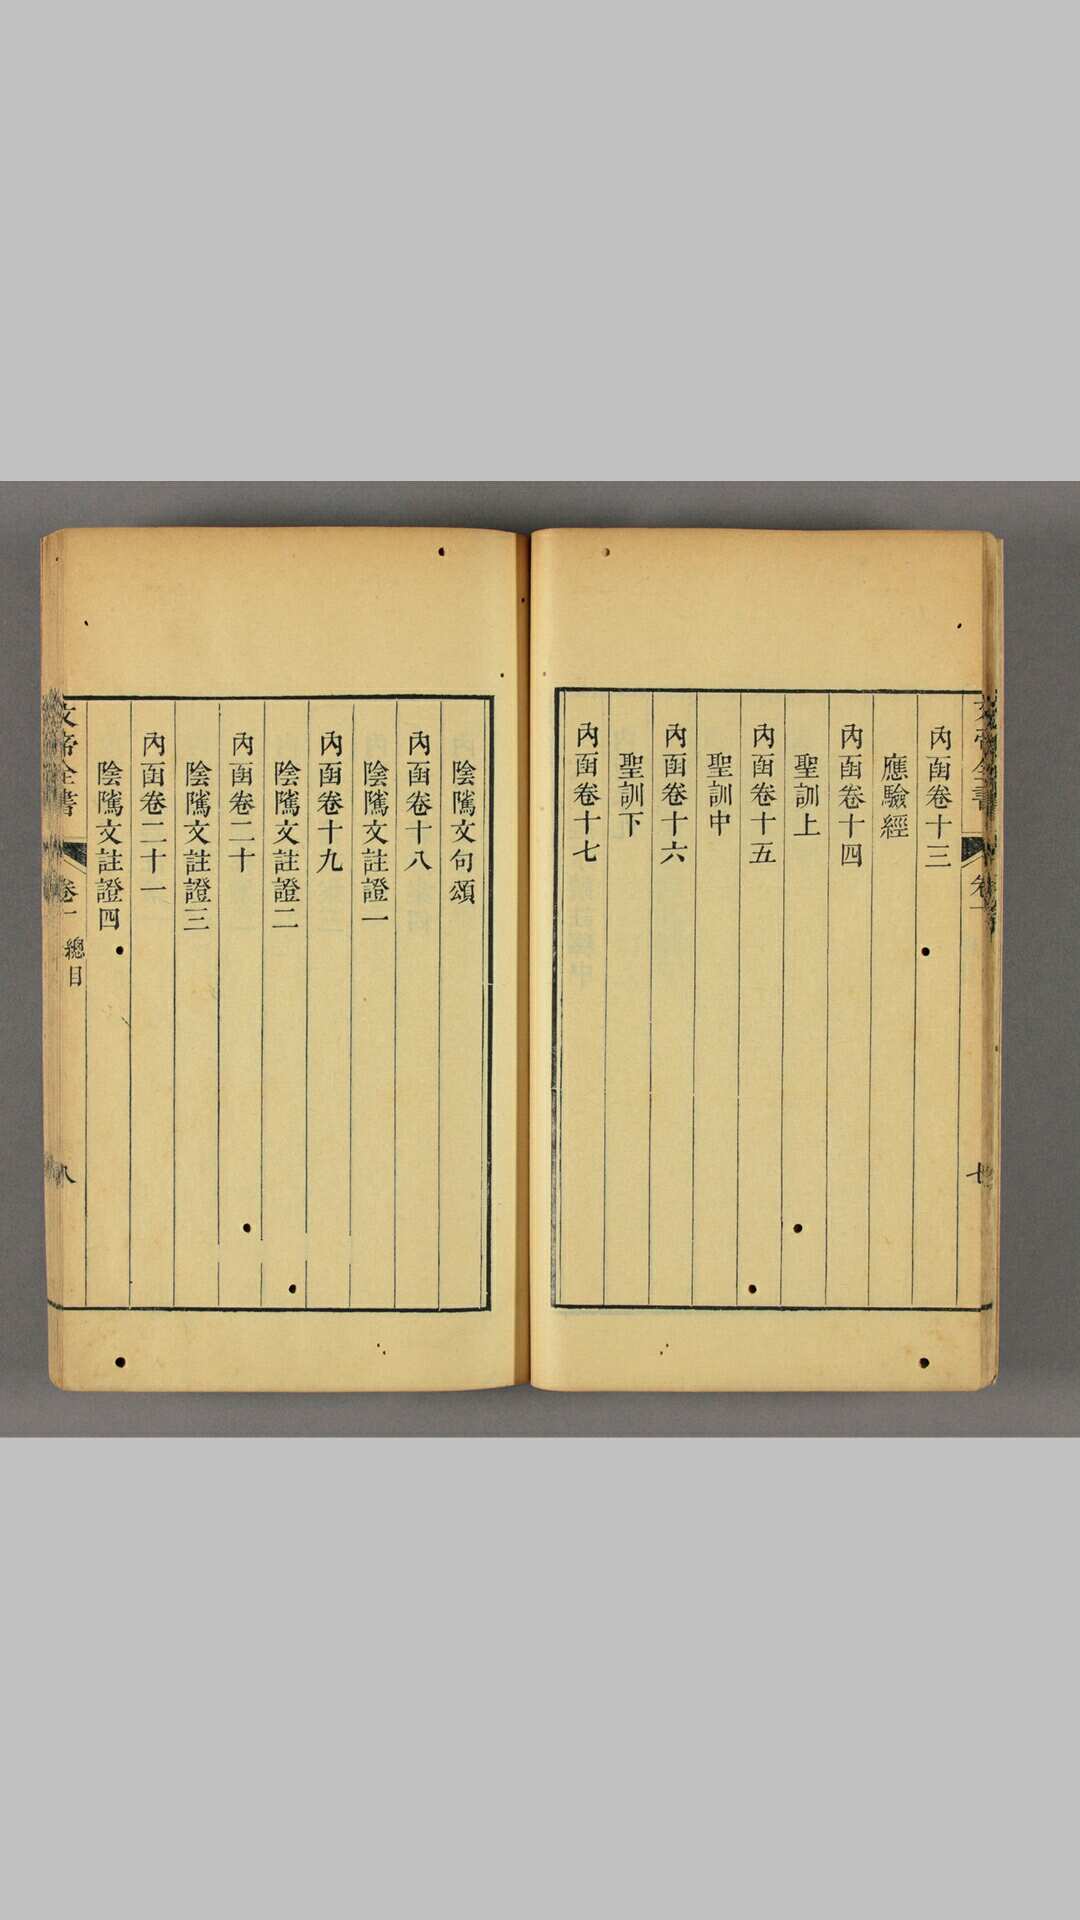 內函卷十三
應驗經
內函卷十四
聖訓上
內函卷十五
聖訓中
內函卷十六
聖訓下
內函卷十七
陰隲文句頌
內函卷十八
陰隲文註證一
內函卷十九
陰隲文註證二
內函卷二十
陰隲文註證三
內函卷二十一
陰隲文註證四
文帝全書
卷一 總目
八